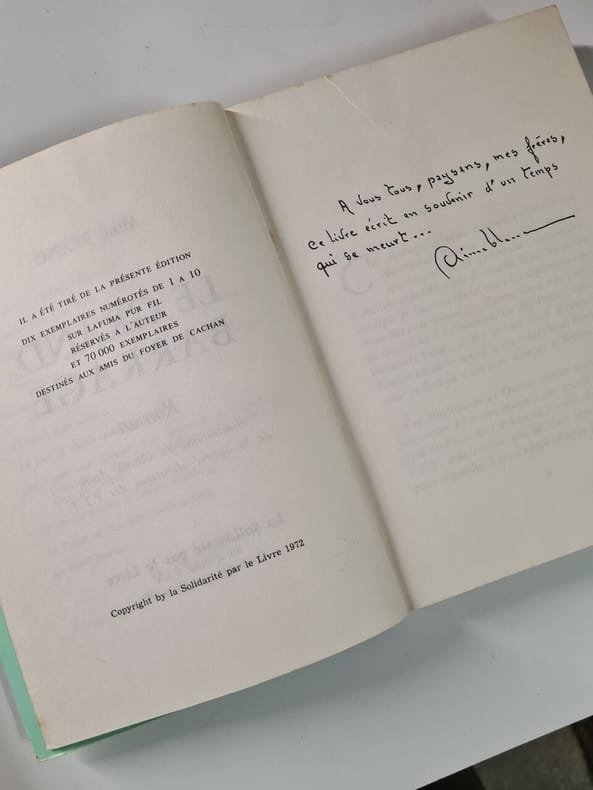 IL A ÉTÉ TIRÉ DE LA PRÉSENTE ÉDITION
DIX EXEMPLAIRES NUMÉROTÉS DE 1 A 10
SUR LAFUMA PUR FIL
RÉSERVÉS A L'AUTEUR
ET 70 000 EXEMPLAIRES
DESTINÉS AUX AMIS DU FOYER DE CACHAN
Copyright by la Solidarité par le Livre 1972
A vous tous, paysans, mes frères,
ce livre écrit en souvenir d'un temps
qui se meurt...